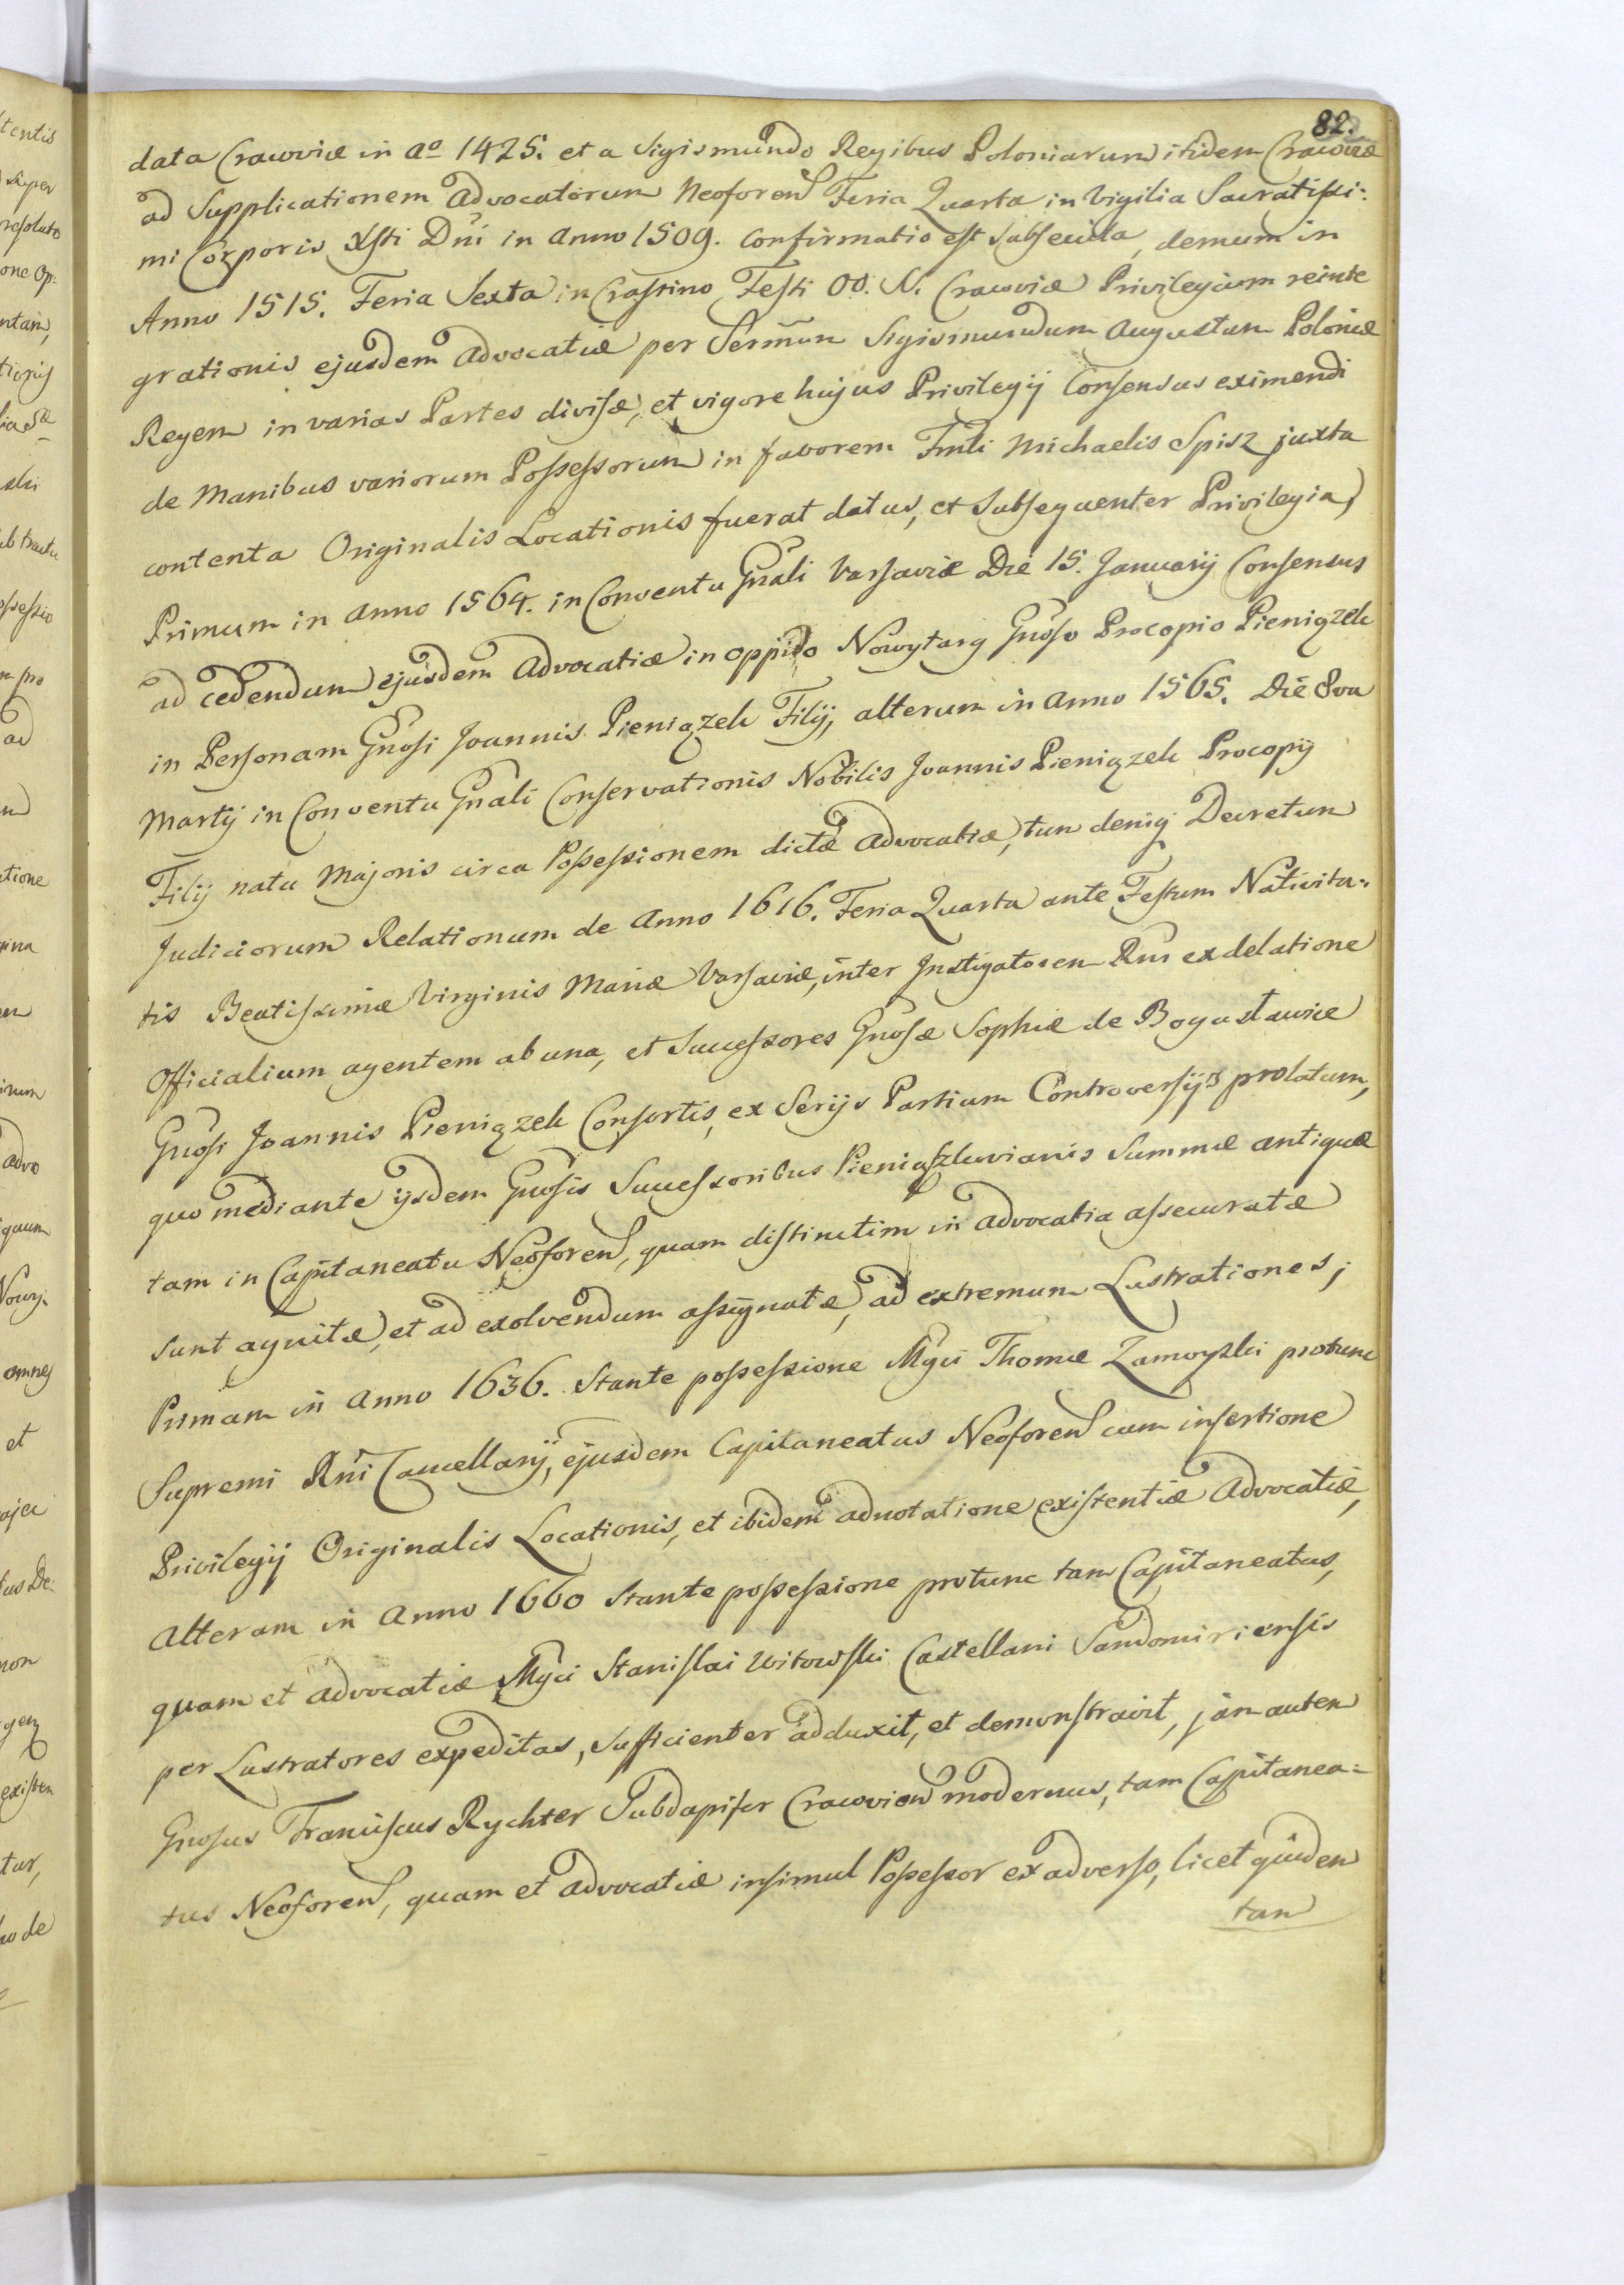 82.
data Cracoviæ in Aº 1425. et a Sigismundo Regibus Poloniarum itidem Cracoviæ
ad Supplicationem Advocatorum Neoforen Feria Quarta in Vigilia Sacratissi:
mi Corporis Xsti Dni in Anno 1509. Confirmatio est subsecuta, demum in
Anno 1515. Feria Sexta in Crastino Festi OO. S. Cracoviæ Privilegium reinte
grationis ejusdem Advocatiæ per Sermum Sigismundum Augustum Poloniæ
Regem in varias Partes divisæ, et vigore hujus Privilegij Consensus eximendi
de Manibus variorum Possessorum in favorem Fmli Michaelis Spisz juxta
contenta Originalis Locationis fuerat datus, et Subsequenter Privilegia,
Primum in Anno 1564. in Conventu Gnali Varsaviæ Die 15. Januarij Consensus
ad cedendum ejusdem Advocatiæ in oppido Nowytarg Gnoso Procopio Pieniązek
in Personam Gnosi Joannis Pieniązek Filij, alterum in Anno 1565. Die 8va
Martij in Conventu Gnali Conservationis Nobilis Joannis Pieniązek Procopij
Filij natu Majoris circa Possessionem dictæ Advocatiæ, tum deniq Decretum
Judiciorum Relationum de Anno 1616. Feria Quarta ante Festum Nativita:
tis Beatissimæ Virginis Mariæ Varsaviæ, inter Instigatorem Rni ex delatione
Officialium agentem ab una, et Successores Gnosæ Sophiæ de Bogusławice
Gnosi Joannis Pieniązek Consortis, ex Serijs Partium Controversijs prolatum,
quo mediante ijsdem Gnosis Successoribus Pieniąszkovianis Summæ antiquæ
tam in Capitaneatu Neoforen, quam distinctim in Advocatia assecuratæ
sunt agnitæ, et ad exolvendum assignatæ, ad extremum Lustrationes,
Primam in Anno 1636. Stante possessione Mgci Thomæ Zamoyski protunc
Supremi Rni Cancellarij, ejusdem Capitaneatus Neoforen cum insertione
Privilegij Originalis Locationis, et ibidem adnotatione existentiæ Advocatiæ,
Alteram in Anno 1660 Stante possessione protunc tam Capitaneatus,
quam et Advocatiæ Mgci Stanislai Witowski Castellani Sandomiriensis
per Lustratores expeditas, sufficienter adduxit, et demonstravit, jam autem
Gnosus Franciscus Rychter Subdapifer Cracovien modernus, tam Capitanea:
tus Neoforen, quam et Advocatiæ insimul Possessor ex adverso, licet quidem
tam